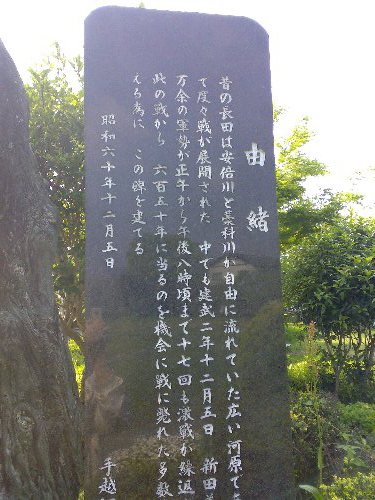 由緒
昔の長田は安倍川と藁科川が自由に流れていた広い河原で
て度々戦が展開された 中でも建武二年十二月五日 新田
万余の軍勢が正午から午後八時頃まで十七回も激戦が繰返
此の戦から 六百五十年に当るのを機会に戦に斃れた多数
える為に この碑を建てる
昭和六十年十二月五日
手越